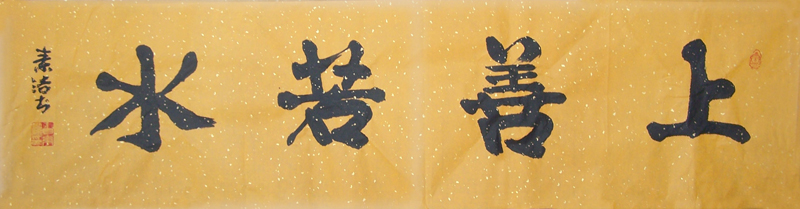 上善若水
素洁书